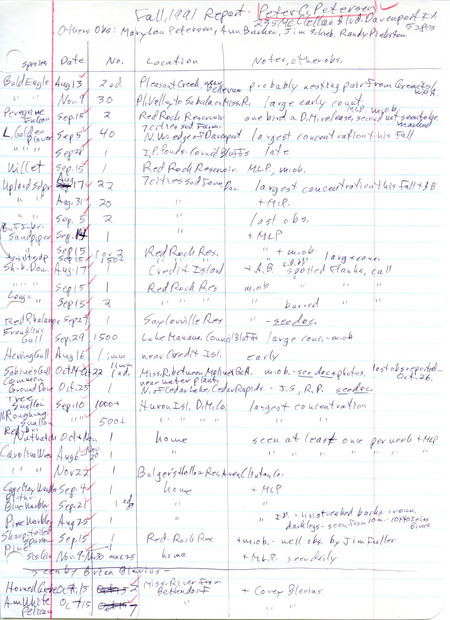 Fall, 1991 Report - Peter C. Petersen
235 McClellan Blvd. Davenport IA
Others Obs: Mary Lou Petersen, Ann Barker, Jim Scheib, Randy Pinkston 52803
species Date No. Location Notes, other obs.
Bald Eagle Aug 13 2 ad. Pleasant Creek near Bellevue probably nesting pair from
" " Nov. 9 30 Pl. Valley to Sabula on Miss R. large early count
Peregrine Falcon Sep 15 2 Red Rock Reservoir one bird a D.M. release, second not MLP, m.ob.
L. Golden Plover Sep 5 40 7 cities sod Farm N.W. edge of Davenport largest concentration this fall
" " Sep 28 1 I.P. Ponds - Council Bluffs late
Willet Sep. 15 1 Red Rock Reservoir MLP, m.ob.
Upland Sdpr. Aug 17 22 7 cities sod Farm, Dav. largest concentration this Fall + AB
" " Aug. 31 20 " + MLP
" " Sep. 5 2 " last obs.
Buff-br. Sandpiper Sep. 14 1 " + MLP
" " Sep 15 1 or 2 Red Rock Res. " + m.ob
Sh-b. Dow. Aug 17 1 Credit Island + A.B. spotted flanks, call
" " Sep 15 1 Red Rock Res m.ob " "
Long- " Sep 15 2 " " " barred "
Red Phalarope Sep 29 1 Saylorville Res - see doc.
Franklin's Gull Sep. 29 1500 Lake Manawa, Council Bluffs large conc. - m.ob
Herring Gull Aug 16 1 imm near Credit Isl. early
Sabine's Gull Oct 14-Oct 22 Miss. R. between Moline & A. m.ob. - see doc & photos, last obs. reported Oct. 26.
near water plant
Common Ground Dove Oct. 25 1 N. of Cedar Lake, Cedar Rapids - J.S., R.P. see doc.
Tree Swallow Sep. 10 1000+ Huron Isl. D.M.Co. largest concentration
N. Rough-wing. Swallow " 500+ " " " " "
Red-br. Nuthatch Oct & Nov 1 home seen at least one per week + MLP
Carolina Wren Aug 6 - Nov 30 1 " " "
" " Nov 22 1 Bulger's Hollow Rec. Area, Clinton Co.
Cape May Warbler Sep. 4 1 home + MLP
Bl-thr. Blue Warbler Sep. 21 1 "
Pine Warbler Aug 25 1 " I.D. - unstreaked back, crown,
dark legs - seen from 10m - 10x40 Zeiss
Sharp-tailed Sparrow Sep. 15 1 Red Rock Res. + m.ob. - well obs. by Jim Fuller
Pine Siskin Nov. 9 - Nov 30 max 25 home + M.L.P. seen daily
- seen by Brian Blevins -
Horned Grebe Oct. 15 2 Miss. River from Bettendorf + Corey Blevins
Am. White Pelican Oct 15 7 " "